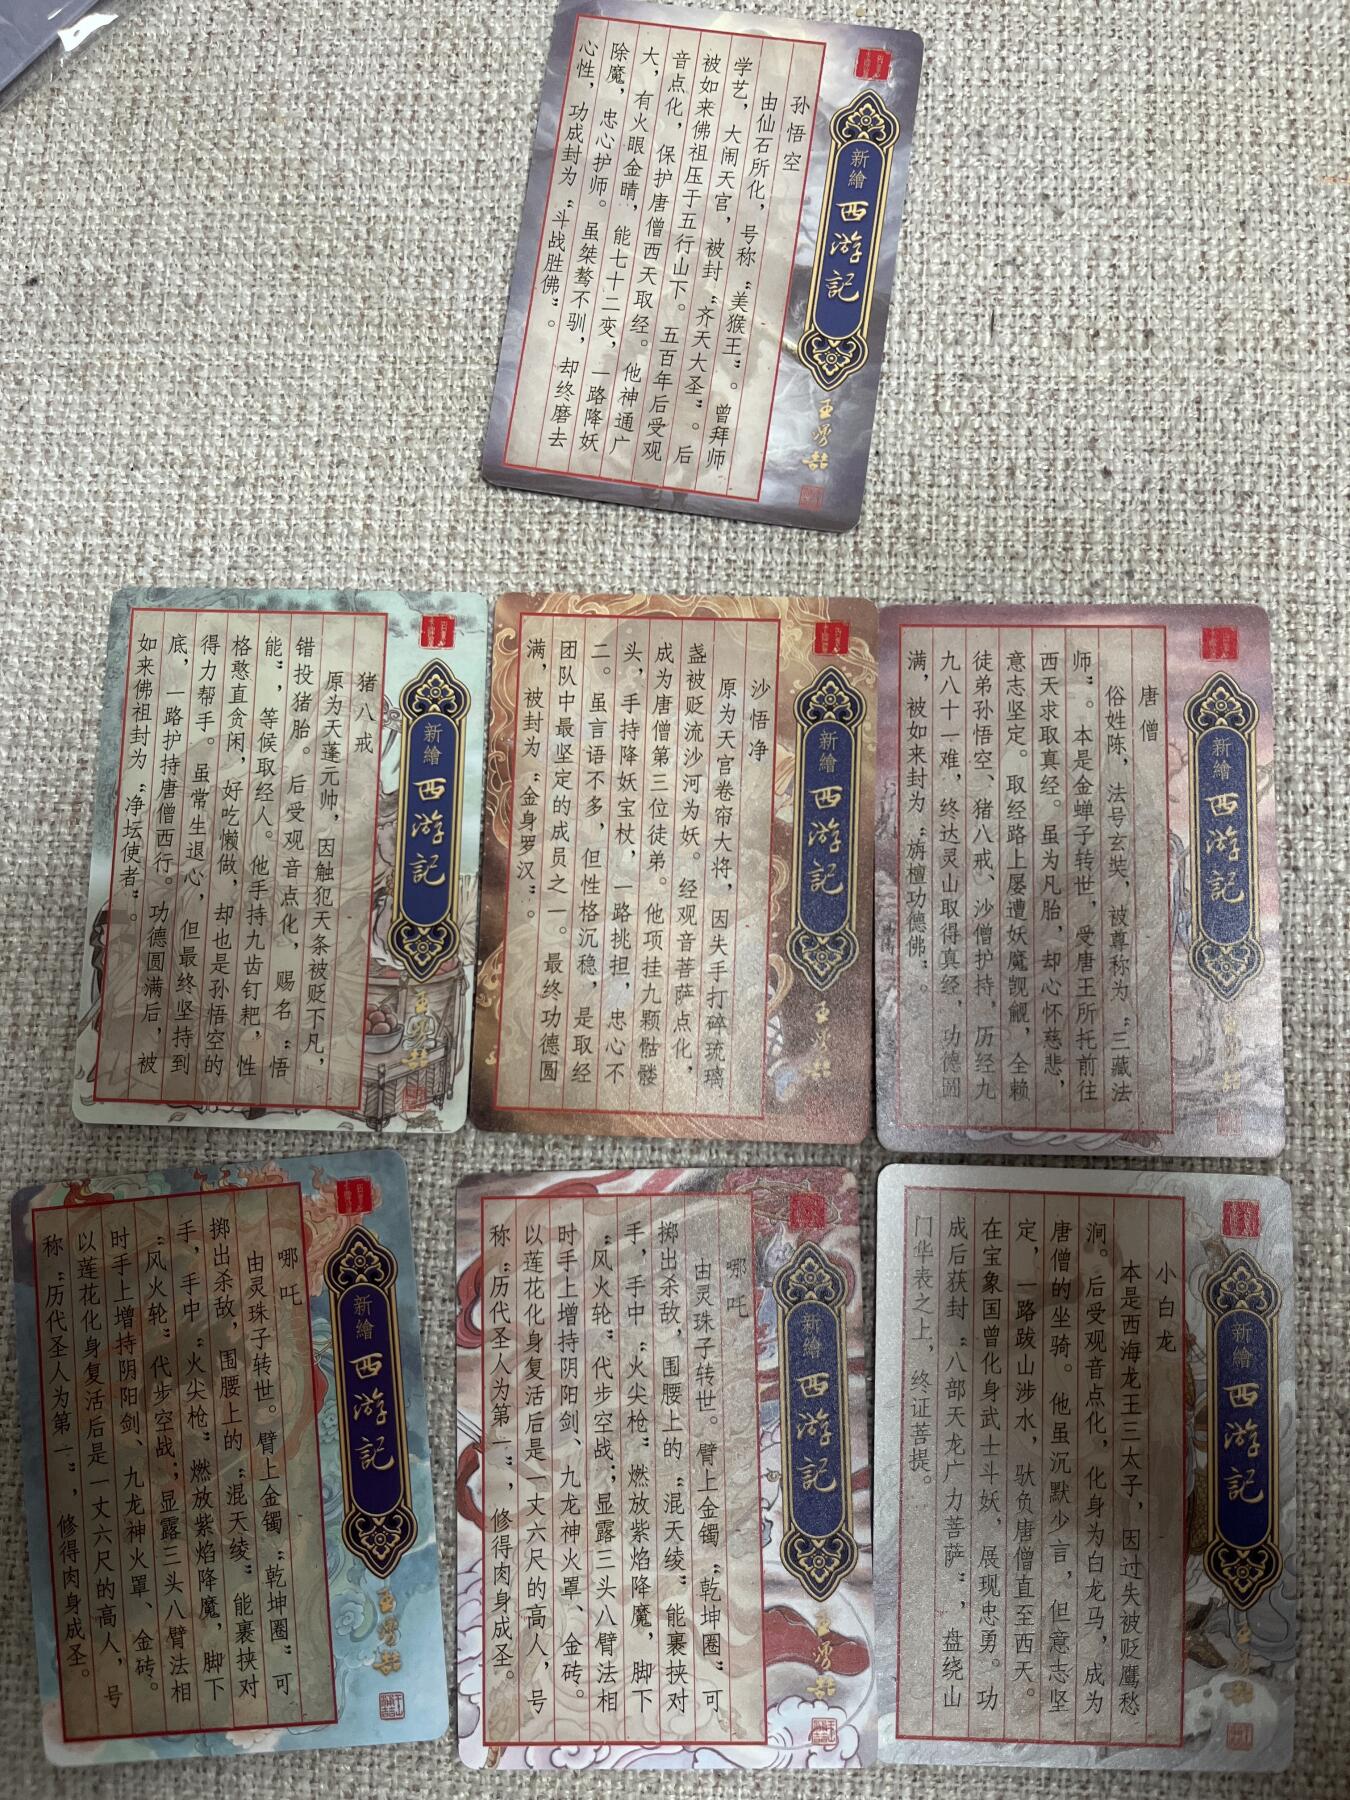 新繪
西游記
孙悟空
由仙石所化，号称“美猴王”。曾拜师
学艺，大闹天宫，被封“齐天大圣”。后
被如来佛祖压于五行山下。五百年后受观
音点化，保护唐僧西天取经。他神通广
大，有火眼金睛，能七十二变，一路降妖
除魔，忠心护师。虽桀骜不驯，却终磨去
心性，功成封为“斗战胜佛”。
新繪
西游記
猪八戒
原为天蓬元帅，因触犯天条被贬下凡，
错投猪胎。后受观音点化，赐名“悟
能”，等候取经人。他手持九齿钉耙，性
格憨直贪闲，好吃懒做，却也是孙悟空的
得力帮手。虽常生退心，但最终坚持到
底，一路护持唐僧西行。功德圆满后，被
如来佛祖封为“净坛使者”。
新繪
西游記
沙悟净
原为天宫卷帘大将，因失手打碎琉璃
盏被贬流沙河为妖。经观音菩萨点化，
成为唐僧第三位徒弟。他项挂九颗骷髅
头，手持降妖宝杖，一路挑担，忠心不
二。虽言语不多，但性格沉稳，是取经
团队中最坚定的成员之一。最终功德圆
满，被封为“金身罗汉”。
新繪
西游記
唐僧
俗姓陈，法号玄奘，被尊称为“三藏法
师”。本是金蝉子转世，受唐王所托前往
西天求取真经。虽为凡胎，却心怀慈悲，
意志坚定。取经路上屡遭妖魔觊觎，全赖
徒弟孙悟空、猪八戒、沙僧护持，历经九
九八十一难，终达灵山取得真经，功德圆
满，被如来封为“旃檀功德佛”。
新繪
西游記
哪吒
由灵珠子转世。臂上金镯“乾坤圈”可
掷出杀敌，围腰上的“混天绫”能裹挟对
手，手中“火尖枪”燃放紫焰降魔，脚下
“风火轮”代步空战；显露三头八臂法相
时手上增持阴阳剑、九龙神火罩、金砖。
以莲花化身复活后是一丈六尺的高人，号
称“历代圣人为第一”，修得肉身成圣。
新繪
西游記
哪吒
由灵珠子转世。臂上金镯“乾坤圈”可
掷出杀敌，围腰上的“混天绫”能裹挟对
手，手中“火尖枪”燃放紫焰降魔，脚下
“风火轮”代步空战；显露三头八臂法相
时手上增持阴阳剑、九龙神火罩、金砖。
以莲花化身复活后是一丈六尺的高人，号
称“历代圣人为第一”，修得肉身成圣。
新繪
西游記
小白龙
本是西海龙王三太子，因过失被贬鹰愁
涧。后受观音点化，化身为白龙马，成为
唐僧的坐骑。他虽沉默少言，但意志坚
定，一路跋山涉水，驮负唐僧直至西天。
在宝象国曾化身武士斗妖，展现忠勇。功
成后获封“八部天龙广力菩萨”，盘绕山
门华表之上，终证菩提。